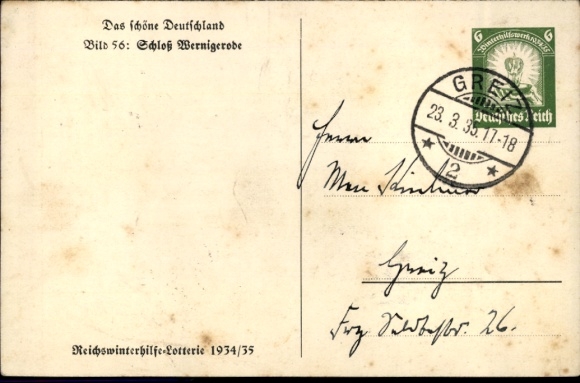 Das schöne Deutschland
Bild 56: Schloß Wernigerode
6 6
Winterhilfswerk 1934/35
Deutsches Reich
GREIZ
23. 3. 35. 17-18
* 2 *
Herrn
Max
Greiz
26.
Reichswinterhilfe-Lotterie 1934/35